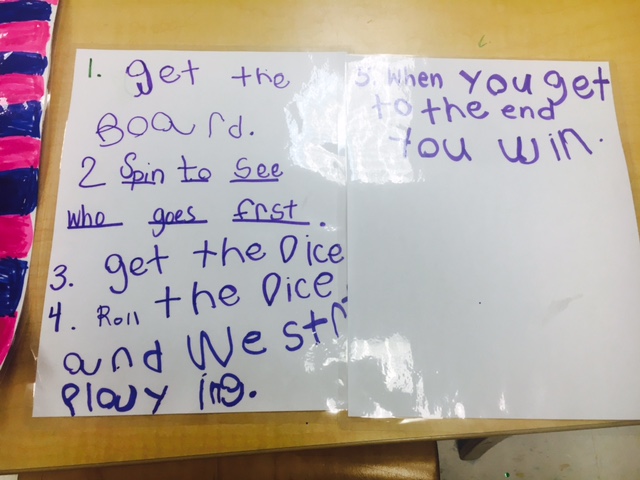 1. get the
Board.
2 Spin to See
who goes frst.
3. get the Dice
4. Roll the Dice
and We str
Playing.
5. When You get
to the end
You win.